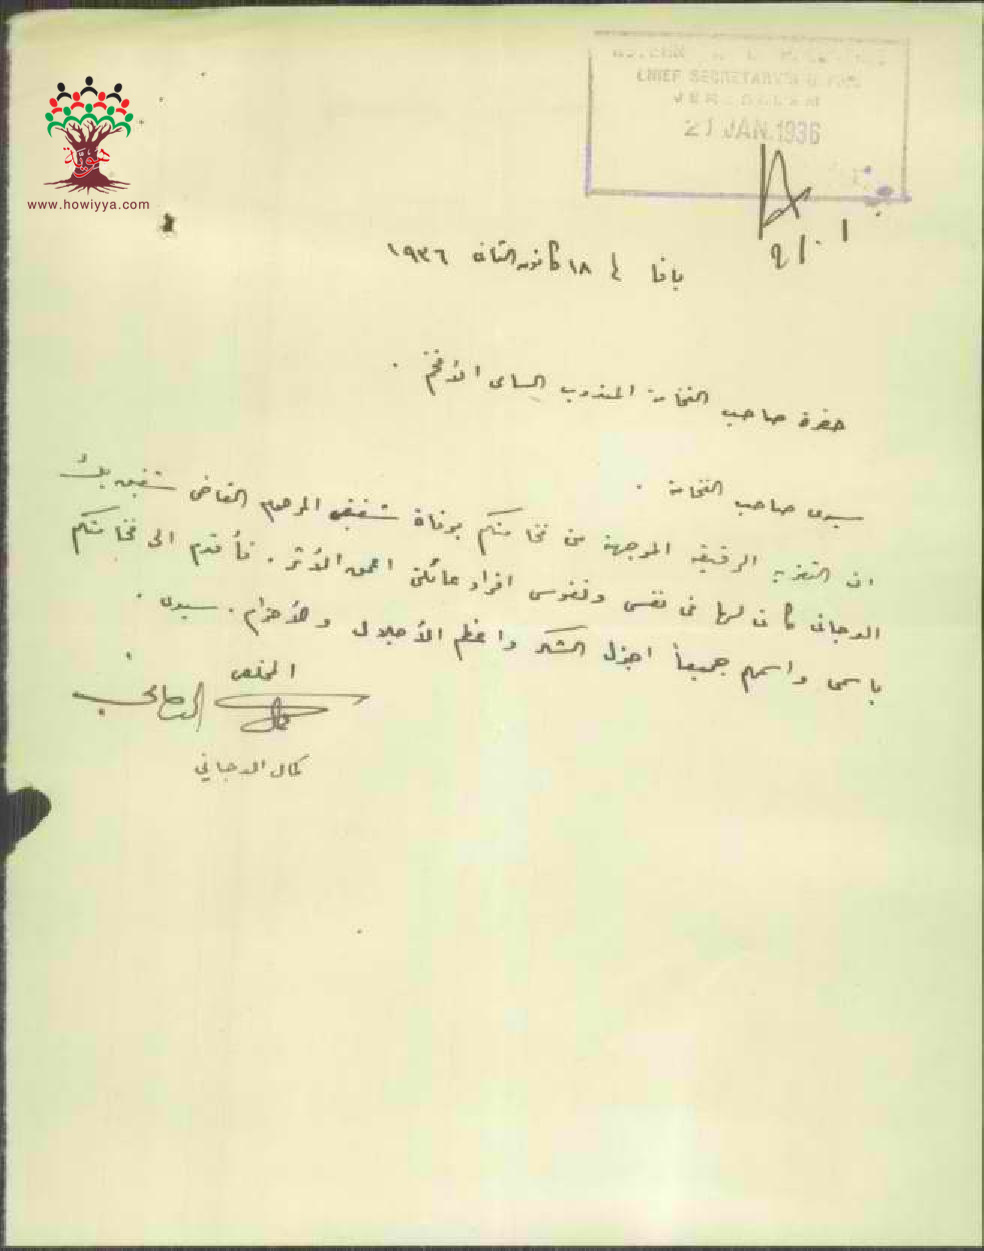 هوية
www.howiyya.com
CHIEF SECRETARY'S OFFICE
JERUSALEM
21 JAN. 1936
21.1
يافا في ١٨ كانون الثاني ١٩٣٦
حضرة صاحب الفخامة المندوب السامي الأفخم .
سيدي صاحب الفخامة .
ان التعزية الرقيقة الموجهة من فخامتكم بوفاة شقيقي المرحوم القاضي شفيق بك
الدجاني كان لها في نفسي ونفوس افراد عائلتي اعمق الأثر . فأقدم الى فخامتكم
باسمي واسمهم جميعاً اجزل الشكر واعظم الأجلال والأحترام . سيدي .
المخلص
كمال الدجاني
كمال الدجاني